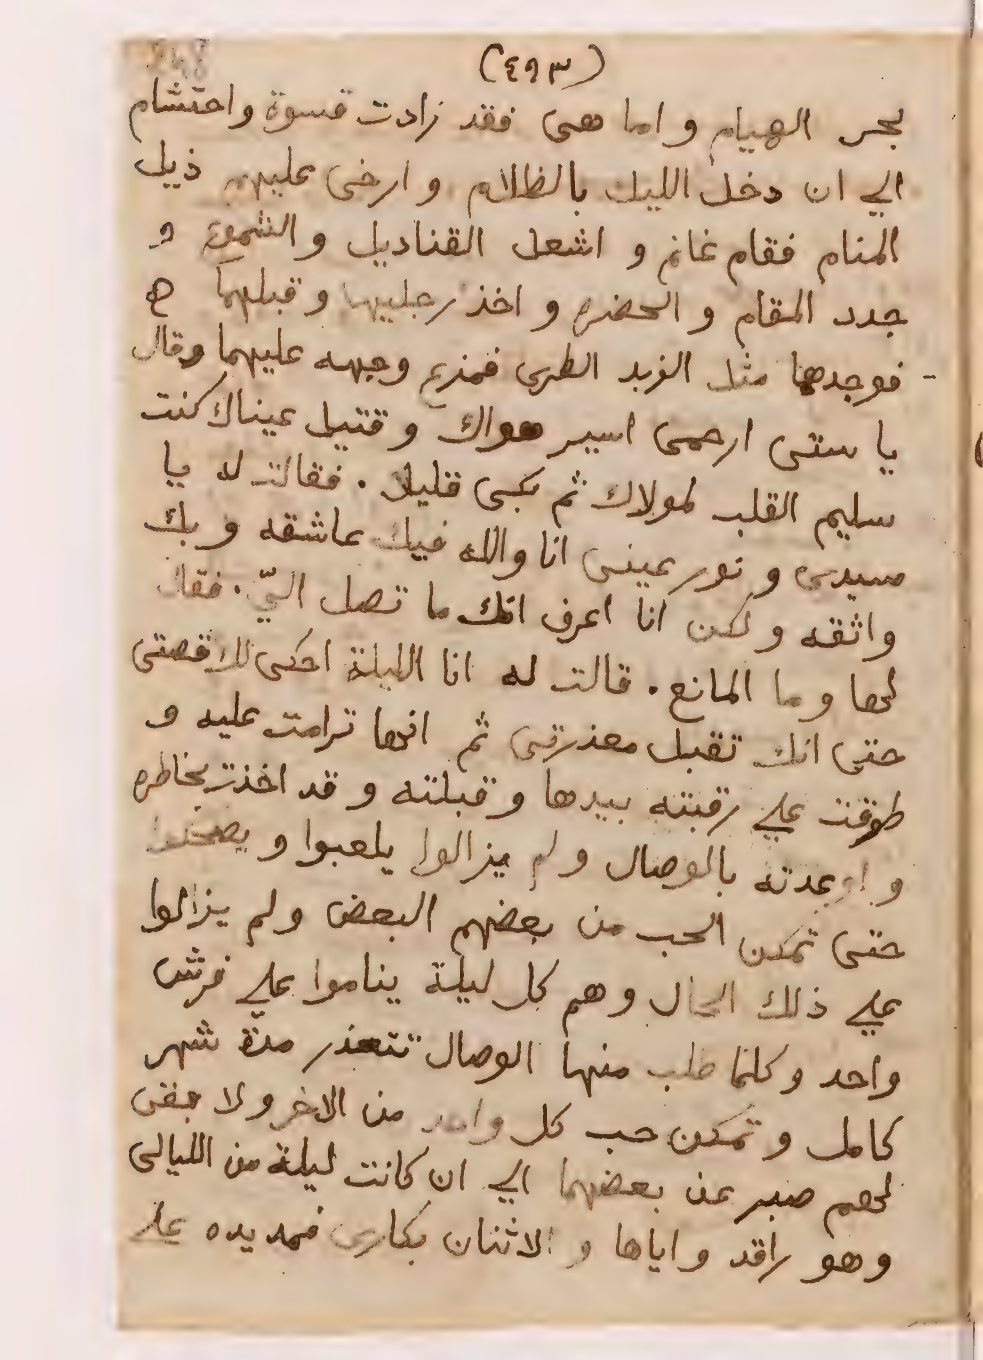 (٤٩٣)
بحر الهيام و اما هى فقد زادت قسوة واحتشام
الي ان دخل الليل بالظلام و ارخى عليهم ذيل
المنام فقام غانم و اشعل القناديل والشموع و
جدد المقام و الحضره و اخذ رجليها و قبلهما
فوجدهما مثل الزبد الطرى فمرغ وجهه عليهما وقال
يا ستى ارحمى اسير هواك و قتيل عيناك كنت
سليم القلب لولاك ثم بكى قليلا . فقالت له يا
سيدى و نور عينى انا والله فيك عاشقه و بك
واثقه و لكن انا اعرف انك ما تصل اليّ . فقال
لحها و ما المانع . قالت له انا الليلة احكى لك قصتى
حتى انك تقبل معذرتى ثم انحها ترامت عليه و
طوقت علي رقبته بيدها و قبلته و قد اخذت بخاطره
و اوعدته بالوصال و لم يزالوا يلعبوا و يضحكوا
حتى تمكن الحب من بعضهم البعض و لم يزالوا
علي ذلك الحال و هم كل ليلة يناموا علي فرش
واحد و كلما طلب منها الوصال تتعذر مدة شهر
كامل و تمكن حب كل واحد من الاخر و لا بقى
لحهم صبر عن بعضهما الي ان كانت ليلة من الليالى
و هو راقد و اياها و الاثنان بكارى فمد يده علي